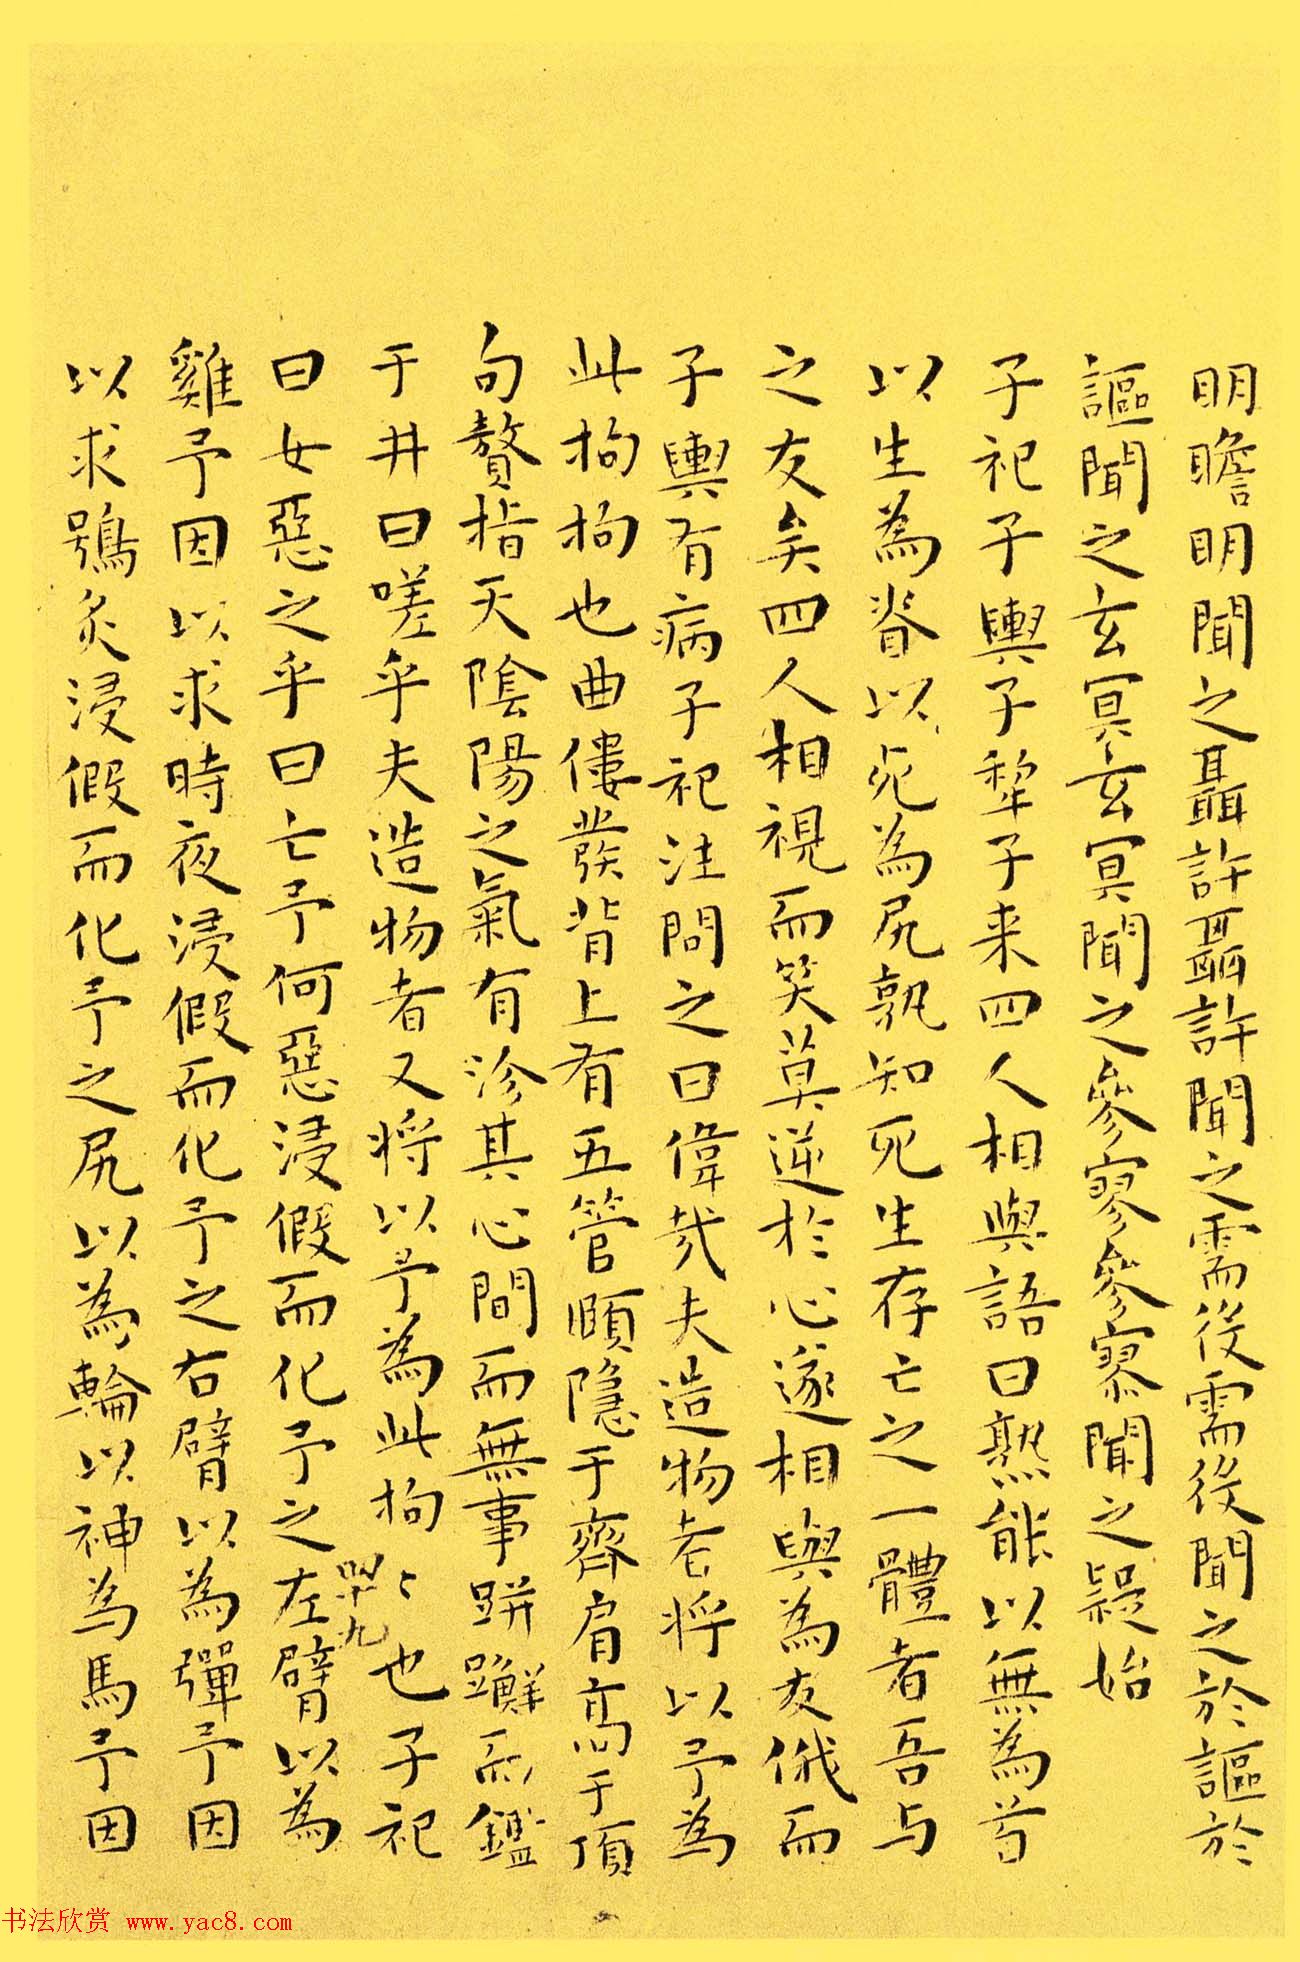 明瞻明聞之聶許聶許聞之需役需役聞之於謳於
謳聞之玄冥玄冥聞之參寥參寥聞之疑始
子祀子輿子犂子来四人相與語曰熟能以無為首
以生為脊以死為尻孰知死生存亡之一體者吾与
之友矣四人相視而笑莫逆於心遂相與為友俄而
子輿有病子祀往問之曰偉哉夫造物者将以予為
此拘拘也曲僂發背上有五管頤隱于齊肩高于頂
句贅指天陰陽之氣有沴其心間而無事跰𨇤而鑑
于井曰嗟乎夫造物者又将以予為此拘〻也子祀
曰女惡之乎曰亡予何惡浸假而化予之左臂以為
雞予因以求時夜浸假而化予之右臂以為彈予因
以求鴞炙浸假而化予之尻以為輪以神為馬予因
四十九
书法欣赏 www.yac8.com